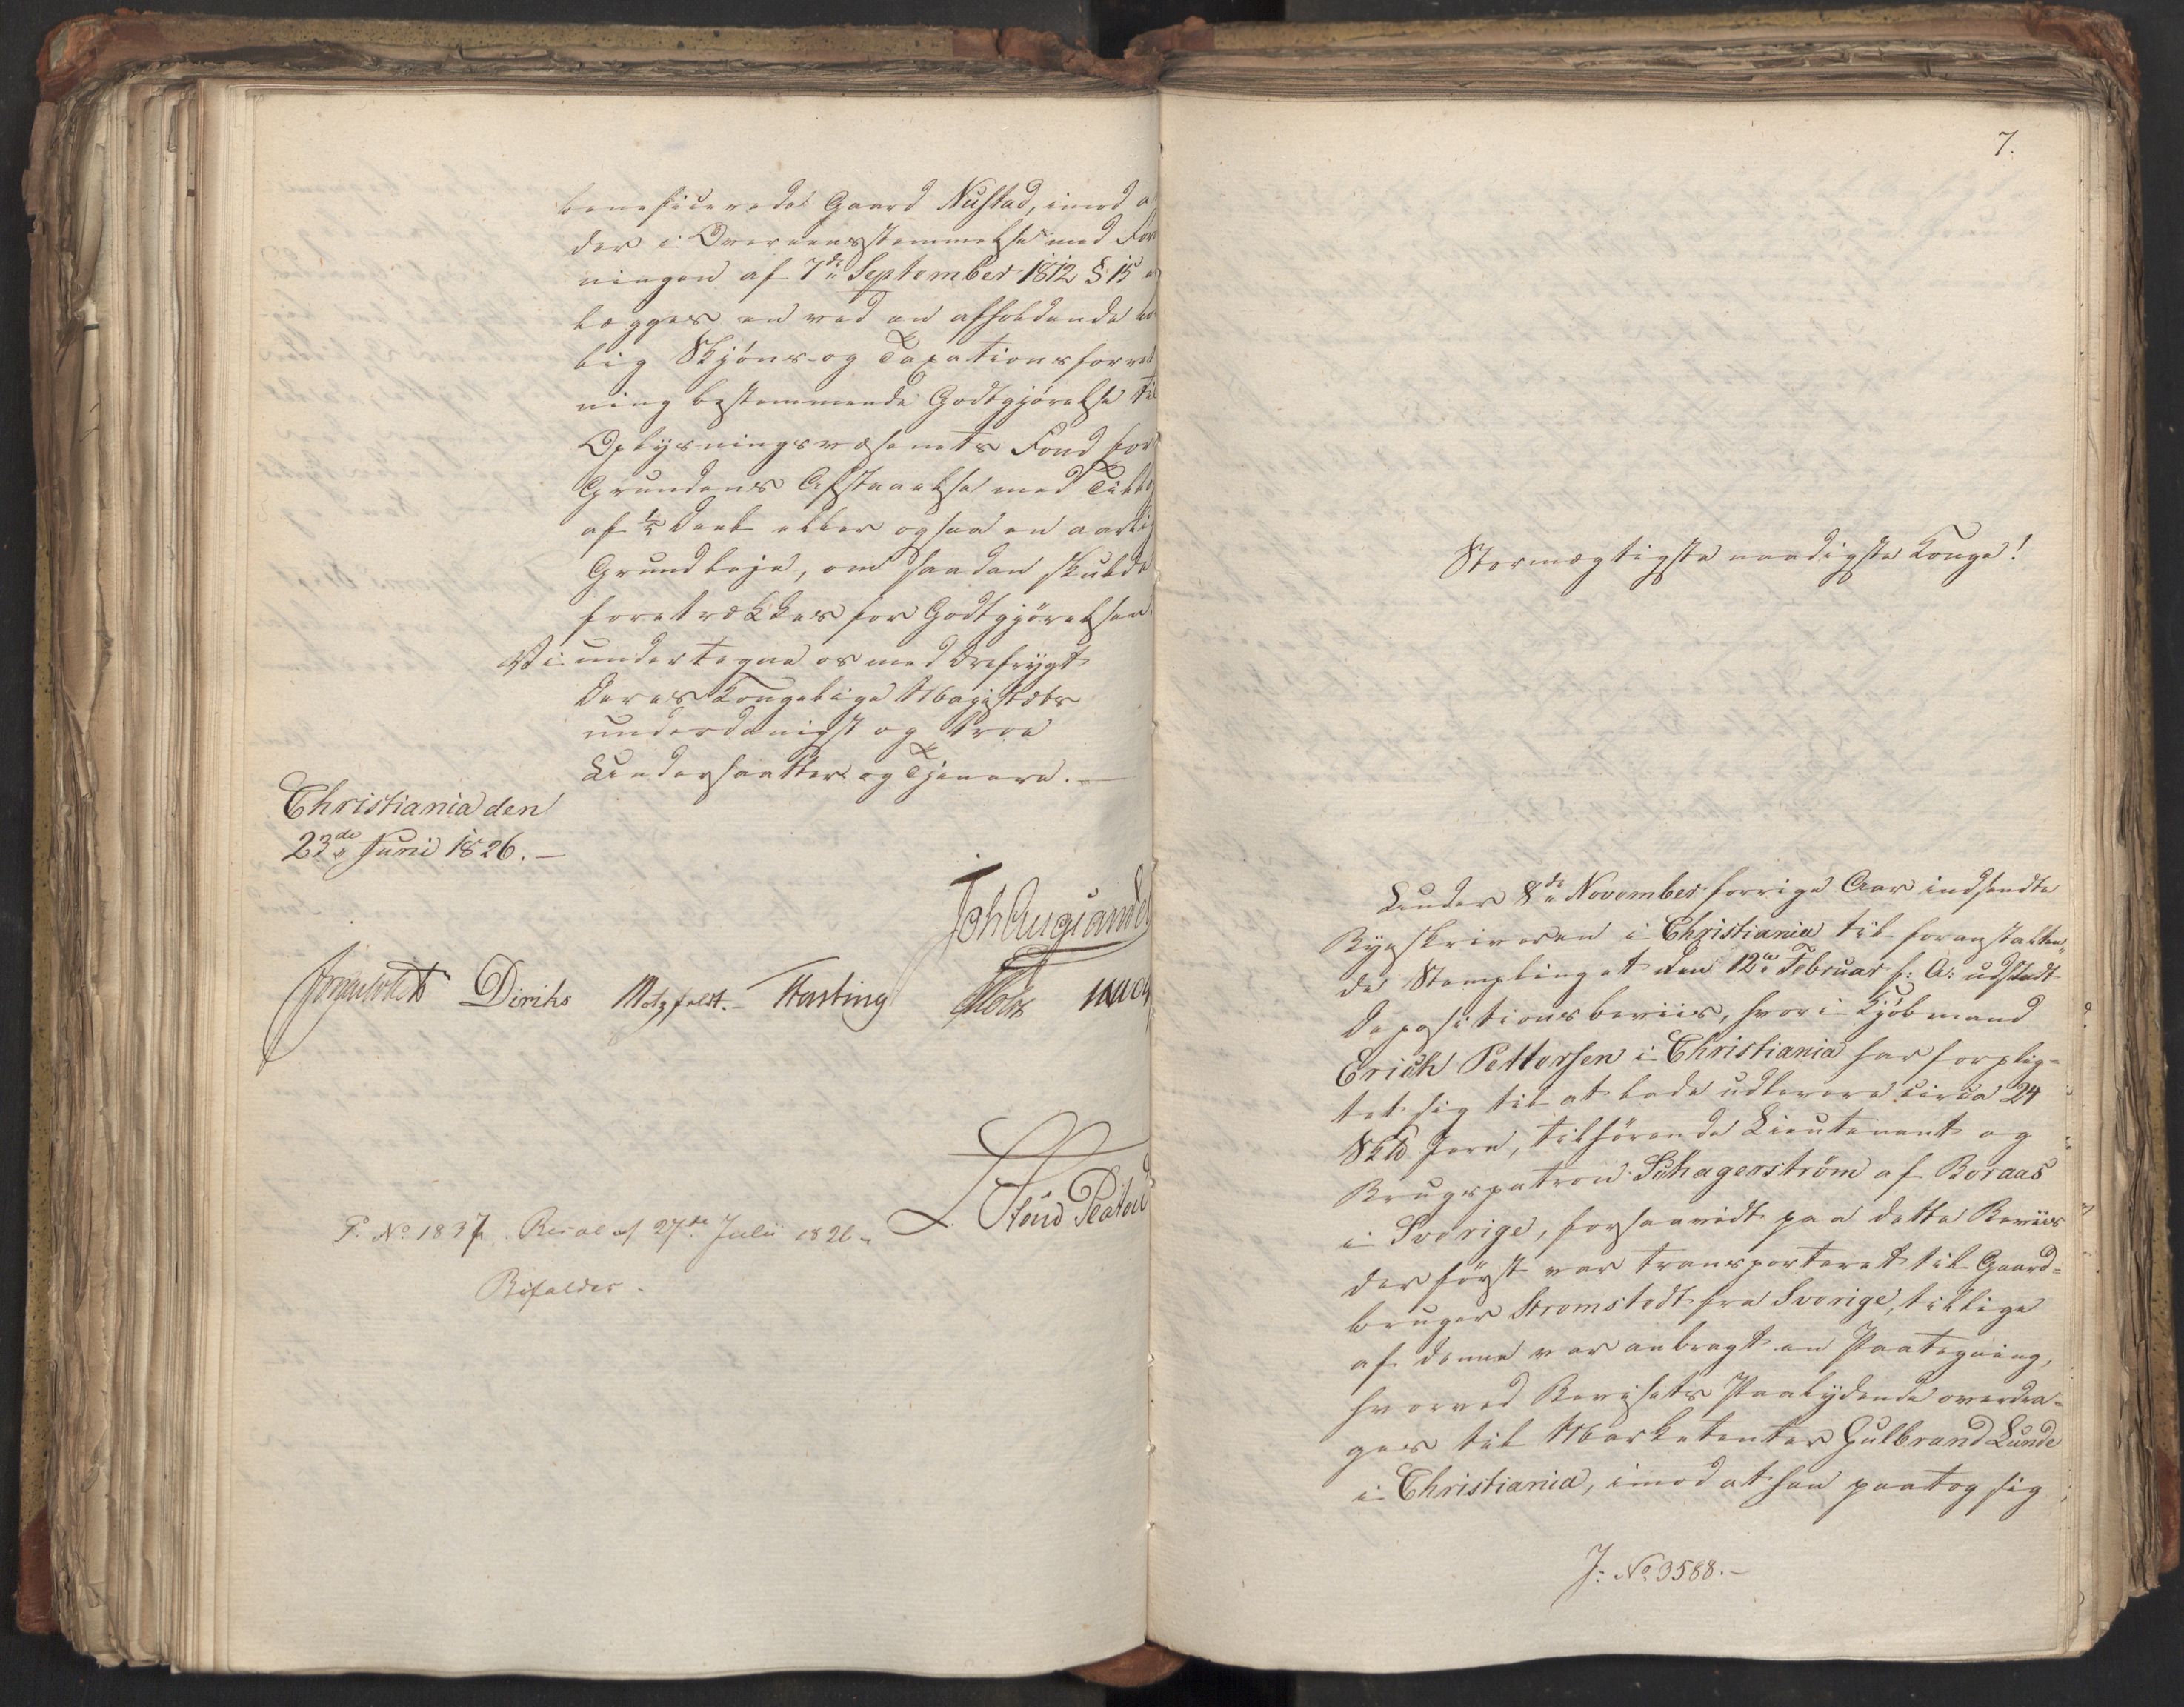 beneficerede Gaard Nustad, imod a
der i Overeensstemmelse med For
ningen af 7de September 1812 § 15
lægges en ved en afholdende lo
lig Skjöns- og Taxationsforret
ning bestemmende Godtgjörelse til
Oplysningsvæsenets Fond for
Grundens Afstaaelse med Tillæg
af 1/5 Deel eller ogsaa en aarlig
Grundleje, om saadan skulde
foretrækkes for Godtgjörelsen.
Vi undertegne os med Ærefrygt
Deres Kongelige Majestæts
underdanigst og troe
Undersaatter og Tjenere. —
Christiania den
23de Juni 1826. —
Joh Aug Sandel
Diriks Motzfeldt. Fasting
P. No 1837. Resol af 27de Julii 1826
Bifaldes.
7.
Stormægtigste naadigste Konge!
Under 8de November forrige Aar indsendte
Byskriveren i Christiania til foranstalten-
de Stempling et den 12te Februar s: A: udstedt
Depositionsbeviis, hvori Kjöbmand
Erich Pettersen i Christiania har forplig-
tet sig til at lade udlevere circa 24
Sk℔ Jern, tilhörende Lieutenant og
Brugspatron Schagerström af Boraas
i Sverige, forsaavidt paa dette Beviis
der först var transporteret til Gaard-
bruger Stromstedt fra Sverige, tillige
af denne var anbragt en Paategning,
hvorved Bevisets Paalydende overdra-
ges til Marketenter Gulbrand Lunde
i Christiania, imod at han paatog sig
J: No 3588. —